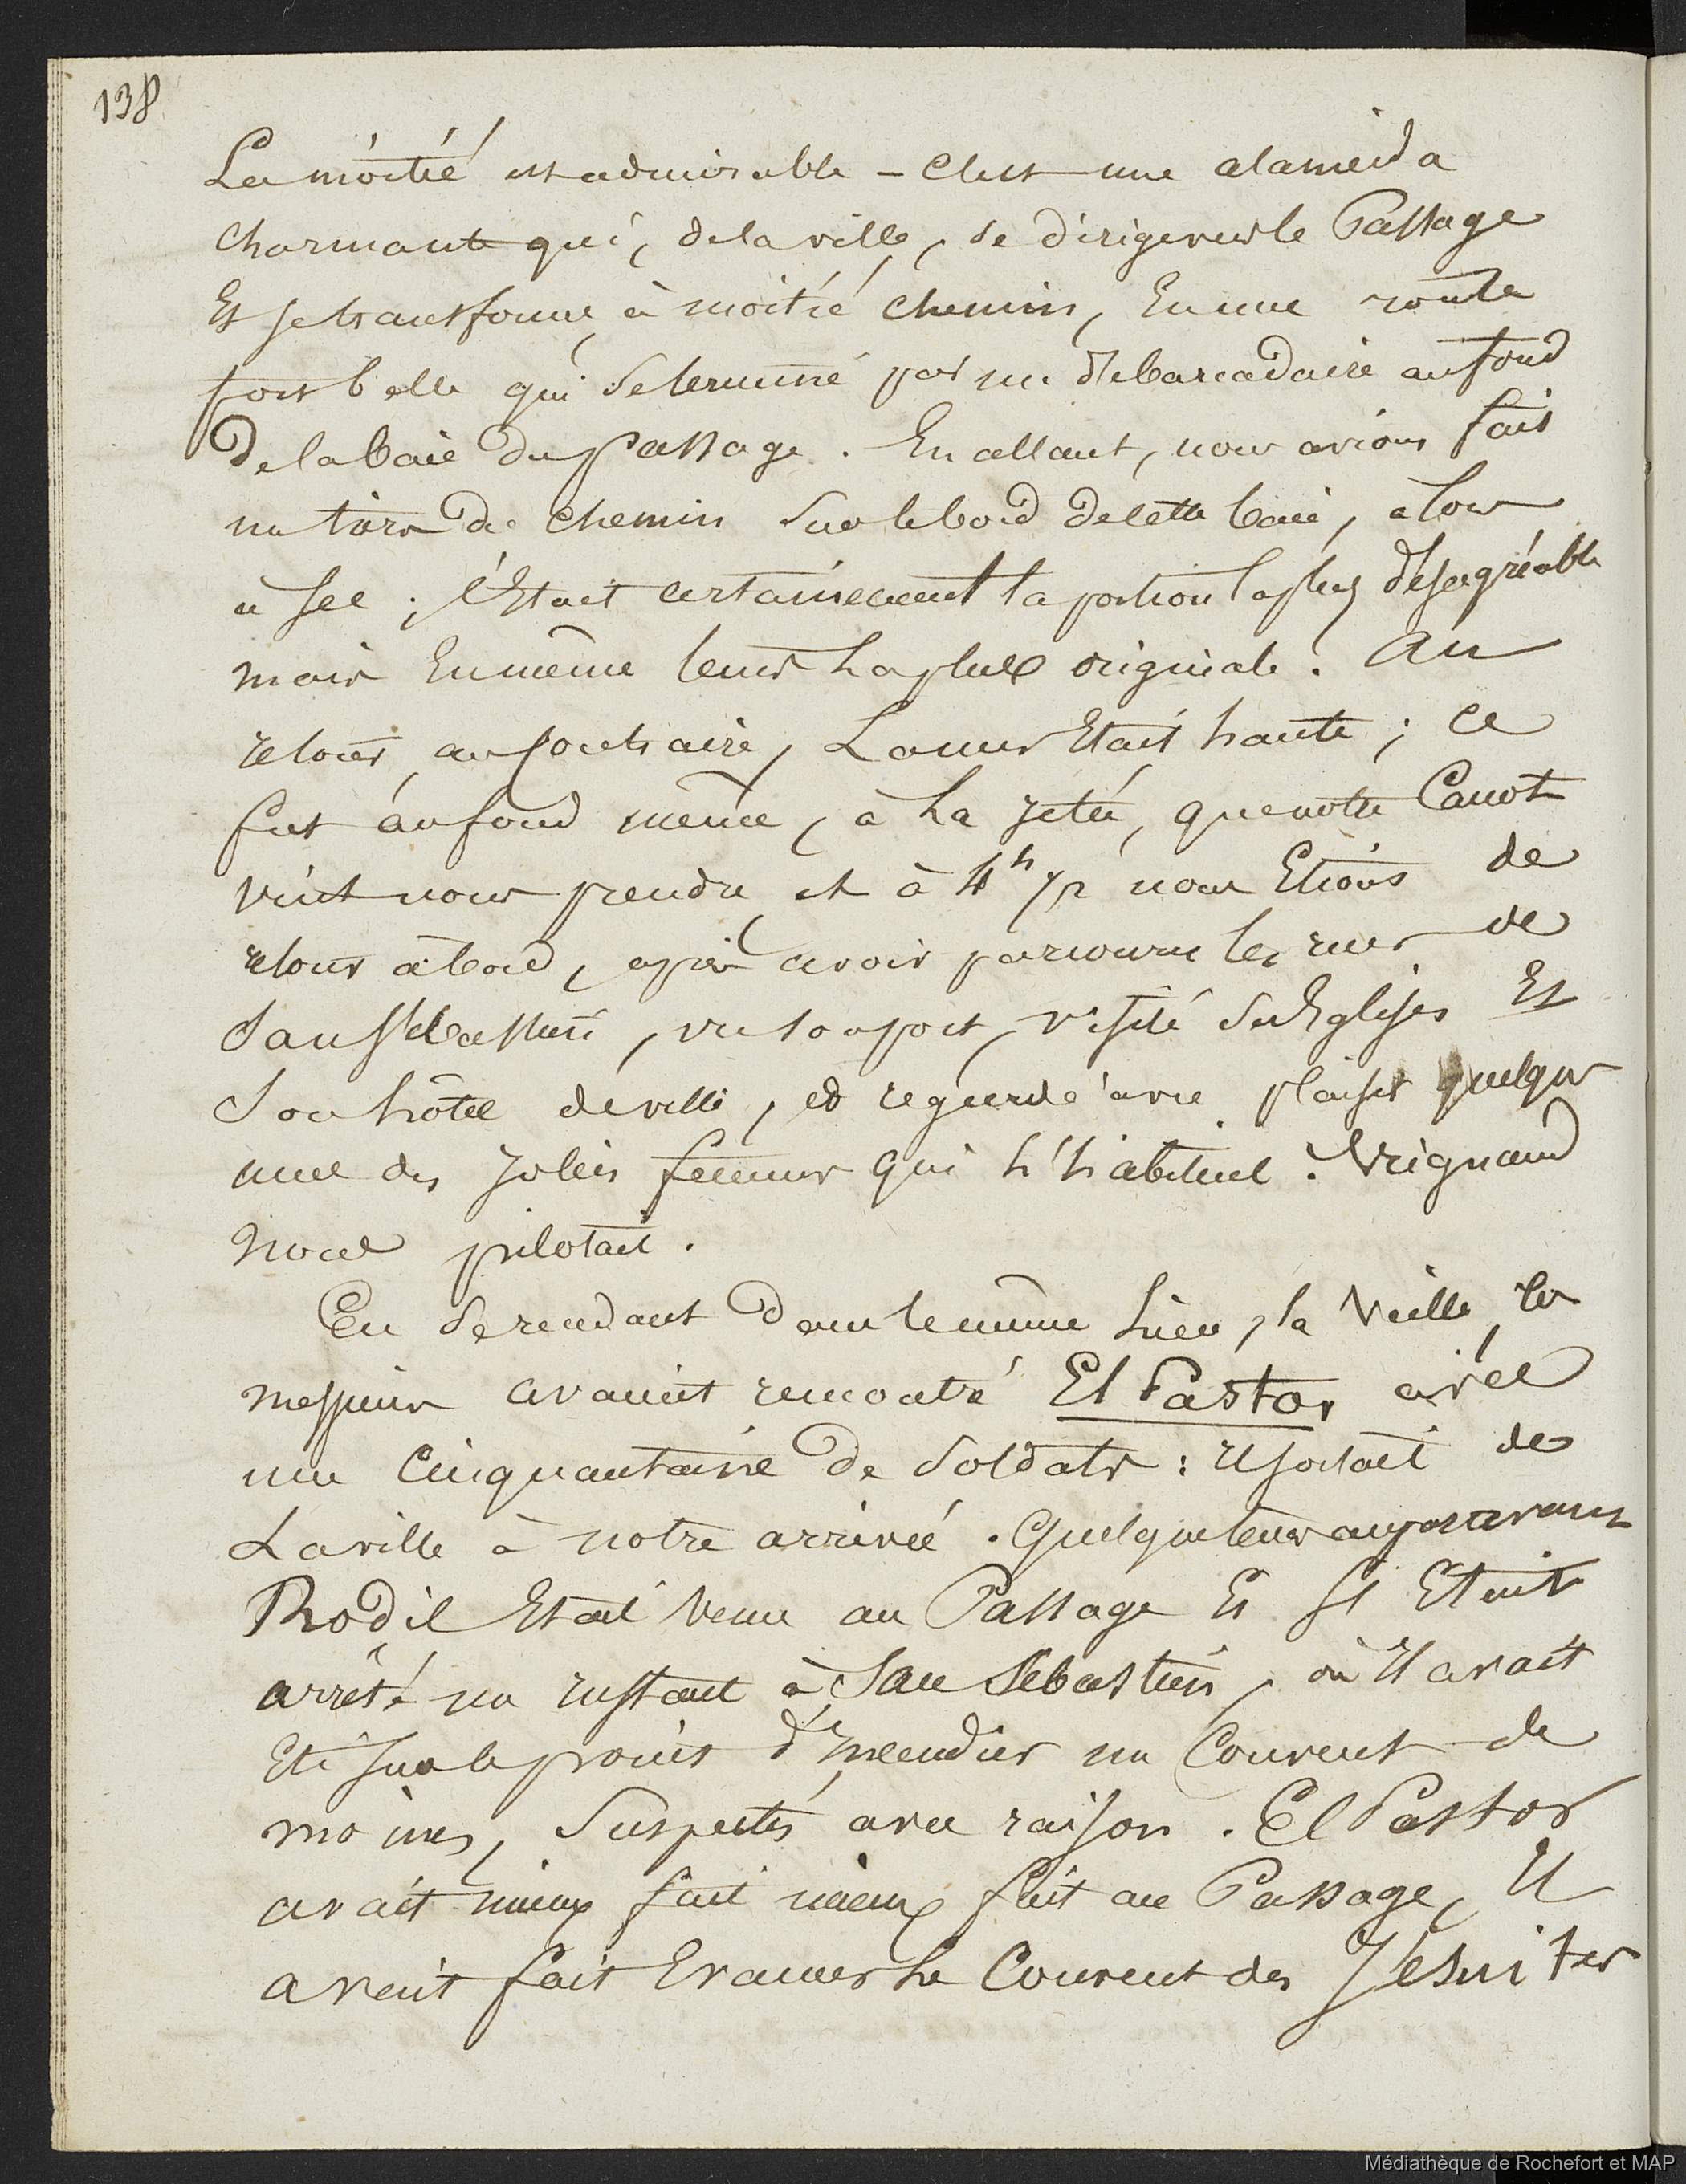 138
La moitié est admirable - C'est une alameida
charmante qui, de la ville, se dirige vers le Passage
Et se transforme, à moitié chemin, En une route
fort belle qui se termine par un débarcadaire au fond
De la baie du Passage. En allant, nous avions fait
un tiers de chemin sur le bord de cette baie, alors
à sec ; c'Etait certainement la portion la plus désagréable
mais En même tems La plus originale. Au
retour, au contraire, La mer Etait haute ; ce
fut au fond même, à La jetée, que notre Canot
vint nous prendre, et à 4h 1/2 nous Etions de
retour à bord, après avoir parcouru les rues de
San Sebastien, vu son port, visité ses Eglises Et
Son hôtel de ville, et regardé avec plaisir quelques
unes des jolies femmes qui L'habitent. Vrignaud
nous pilotait.
En se rendant dans le même Lieu, la Veille, les
messieurs avaient rencontré El Pastor avec
une Cinquantaine de Soldats : Il sortait de
La ville à notre arrivée. Quelque tems auparavant
Rodil Etait venu au Passage Et s'Etait
arrêté un instant à San Sebastien, où Il avait
Eté sur le point d'Incendier un Couvent de
moines, Suspectés avec raison. El Pastor
avait mieux fait mieux fait au Passage, Il
avait fait Evacuer Le Couvent des Jésuites
Médiathèque de Rochefort et MAP